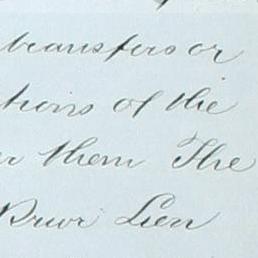 transfers or
tions of the
er them The
Prior Lien